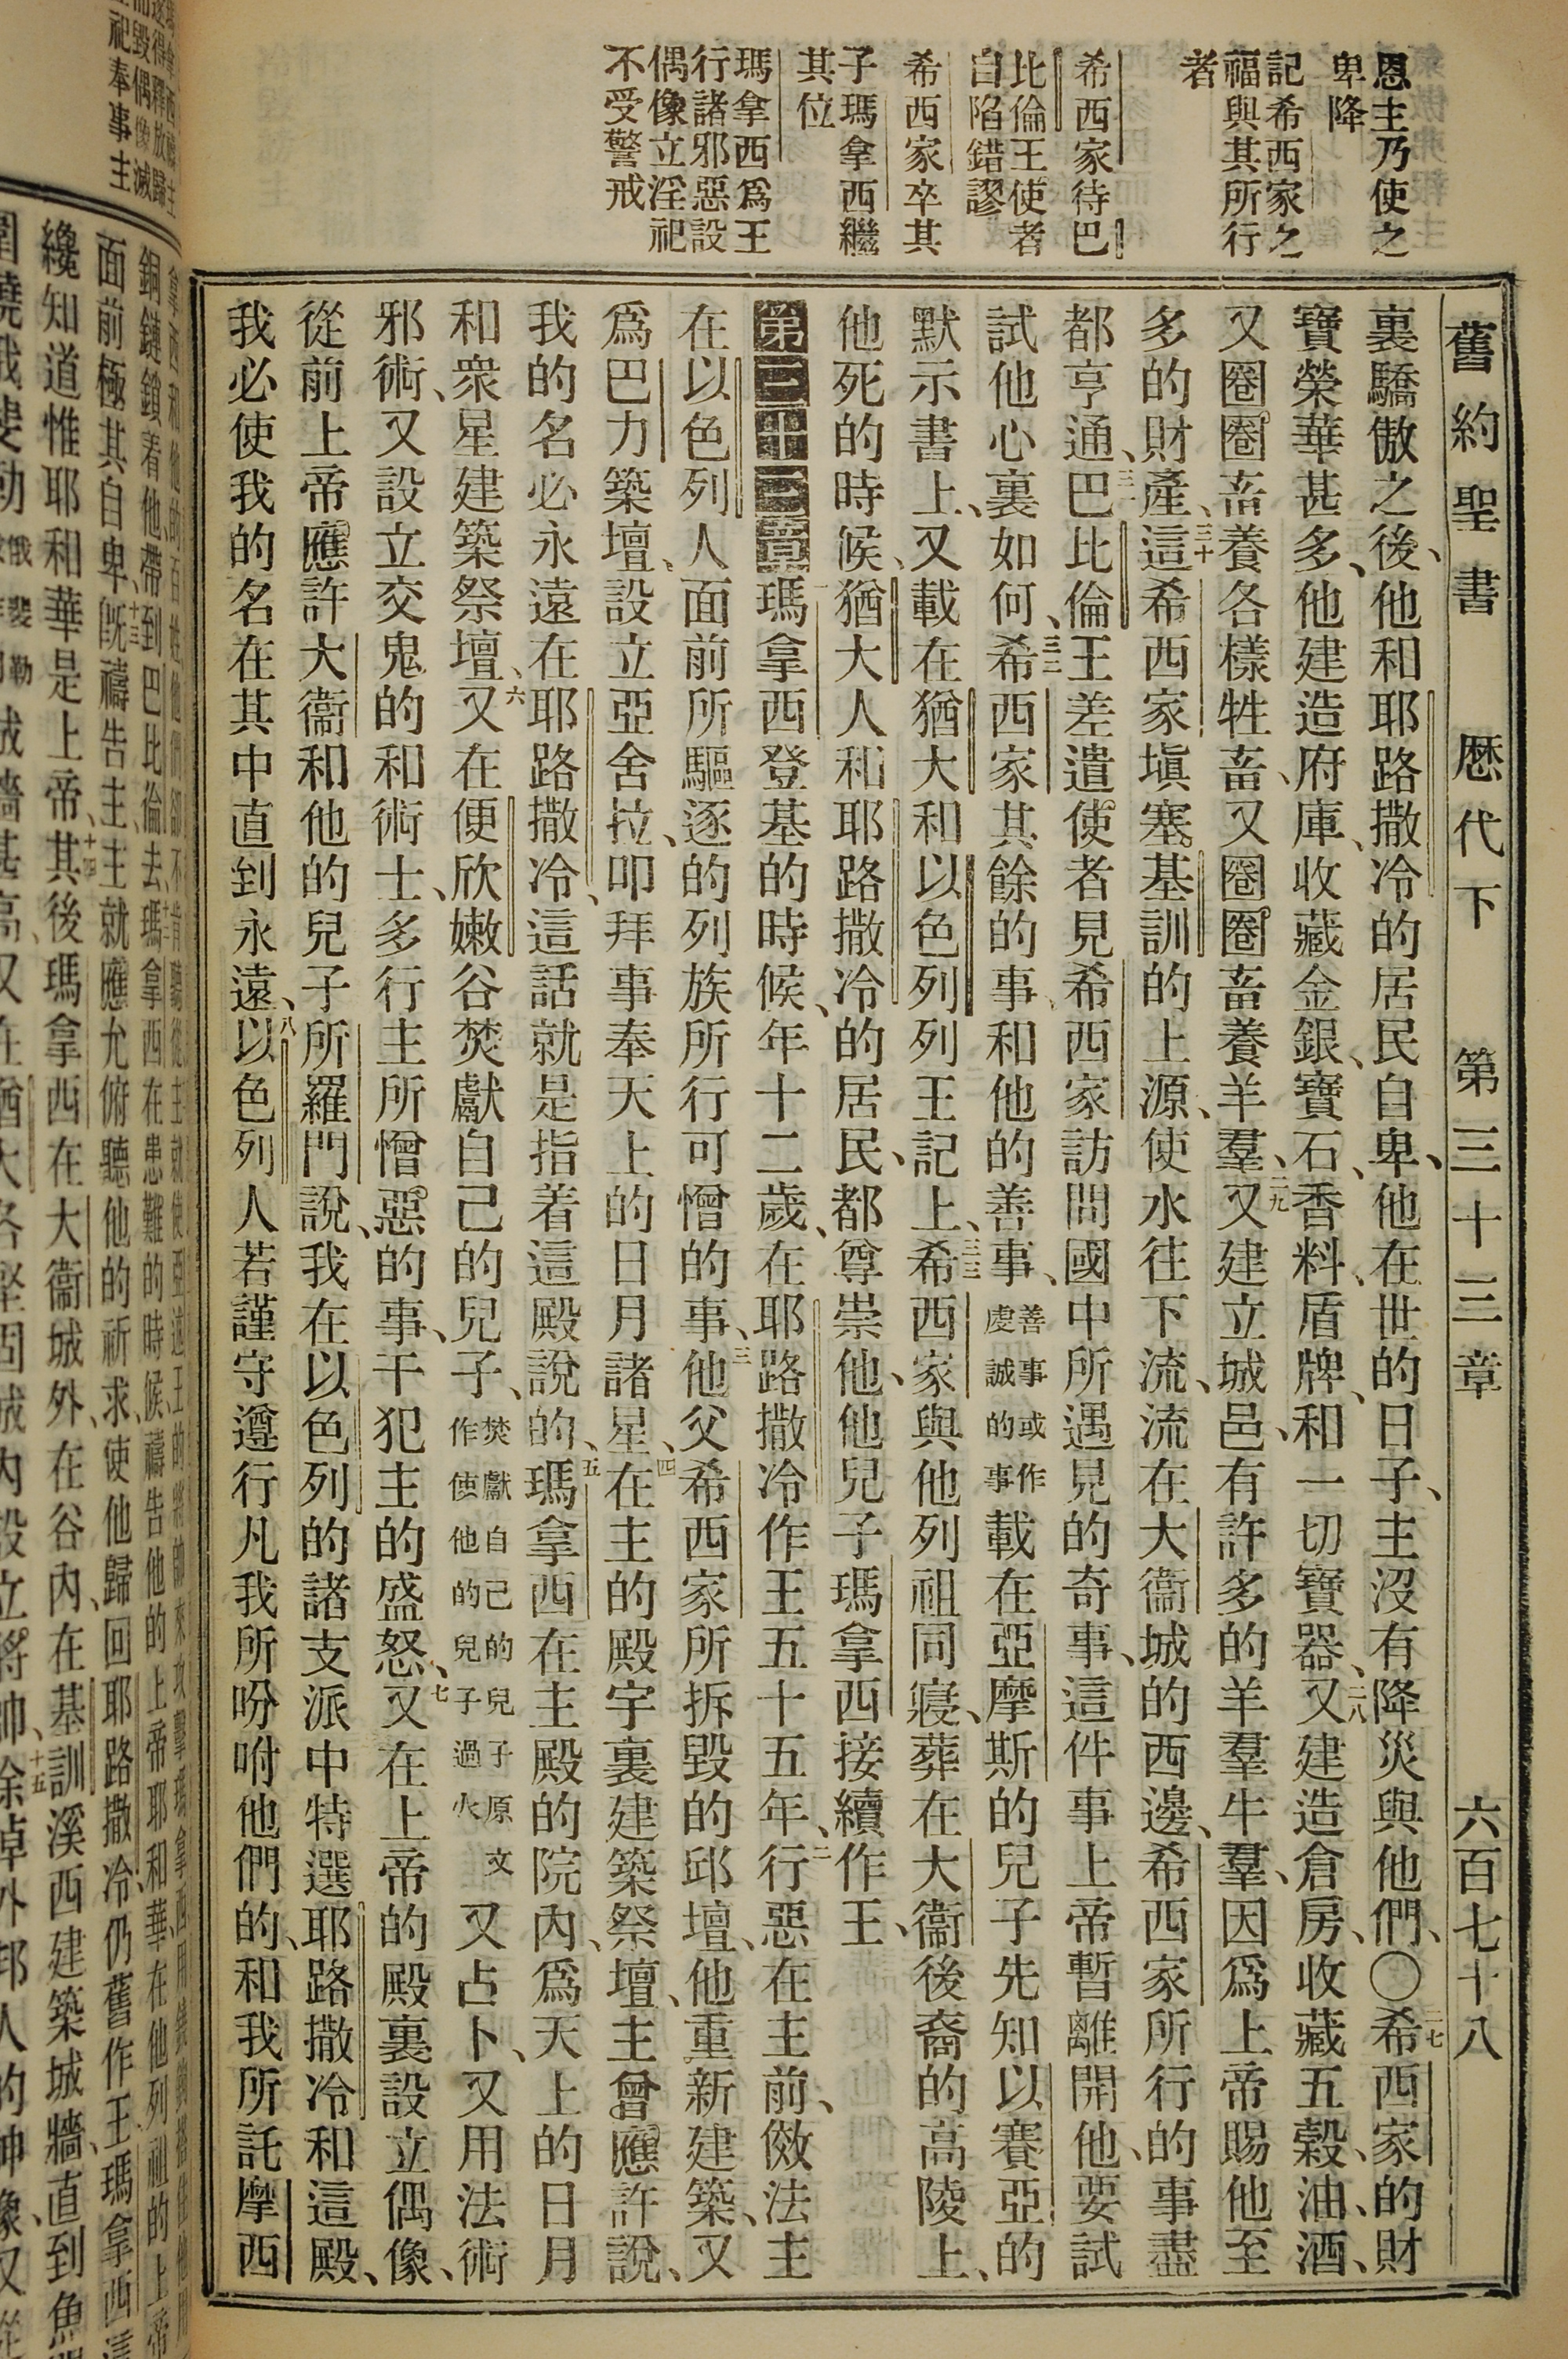 恩主乃使之
卑降
記希西家之
福與其所行
者
希西家待巴
比倫王使者
自陷錯謬
希西家卒其
子瑪拿西繼
其位
瑪拿西爲王
行諸邪惡設
偶像立淫祀
不受警戒
舊約聖書 歷代下 第三十三章 六百七十八
裏驕傲之後、他和耶路撒冷的居民自卑、他在世的日子、主沒有降災與他們、〇二七希西家的財
寶榮華甚多、他建造府庫、收藏金銀、寶石、香料、盾牌、和一切寶器、二八又建造倉房、收藏五穀、油、酒、
又圈圈畜養各樣牲畜、又圈圈畜養羊羣、二九又建立城邑、有許多的羊羣牛羣、因爲上帝賜他至
多的財產、三十這希西家塡塞基訓的上源、使水往下流、流在大衞城的西邊、希西家所行的事盡
都亨通、三一巴比倫王差遣使者見希西家訪問國中所遇見的奇事、這件事上帝暫離開他、要試
試他心裏如何、三二希西家其餘的事、和他的善事、善事或作虔誠的事載在亞摩斯的兒子先知以賽亞的
默示書上、又載在猶大和以色列列王記上、三三希西家與他列祖同寢、葬在大衞後裔的高陵上、
他死的時候、猶大人和耶路撒冷的居民、都尊崇他、他兒子瑪拿西接續作王、
第三十三章一瑪拿西登基的時候、年十二歲、在耶路撒冷作王五十五年、二行惡在主前、傚法主
在以色列人面前所驅逐的列族所行可憎的事、三他父希西家所拆毀的邱壇、他重新建築、又
爲巴力築壇、設立亞舍拉、叩拜事奉天上的日月諸星、四在主的殿宇裏建築祭壇、主曾應許說、
我的名必永遠在耶路撒冷、這話就是指着這殿說的、五瑪拿西在主殿的院內、爲天上的日月
和衆星建築祭壇、六又在便欣嫩谷焚獻自己的兒子、焚獻自己的兒子原文作使他的兒子過火又占卜、又用法術
邪術、又設立交鬼的和術士、多行主所憎惡的事、干犯主的盛怒、七又在上帝的殿裏設立偶像、
從前上帝應許大衞和他的兒子所羅門說、我在以色列的諸支派中特選耶路撒冷和這殿、
我必使我的名在其中直到永遠、八以色列人若謹守遵行凡我所吩咐他們的、和我所託摩西
銅鏈鎖着他、帶到巴比倫去、瑪拿西在患難的時候、禱告他的上帝耶和華、在他列祖的上帝
面前極其自卑、十三旣禱告主、主就應允俯聽他的祈求、使他歸回耶路撒冷、仍舊作王、瑪拿西這
纔知道惟耶和華是上帝、十四其後瑪拿西在大衞城外、在谷內、在基訓溪西建築城牆、直到魚